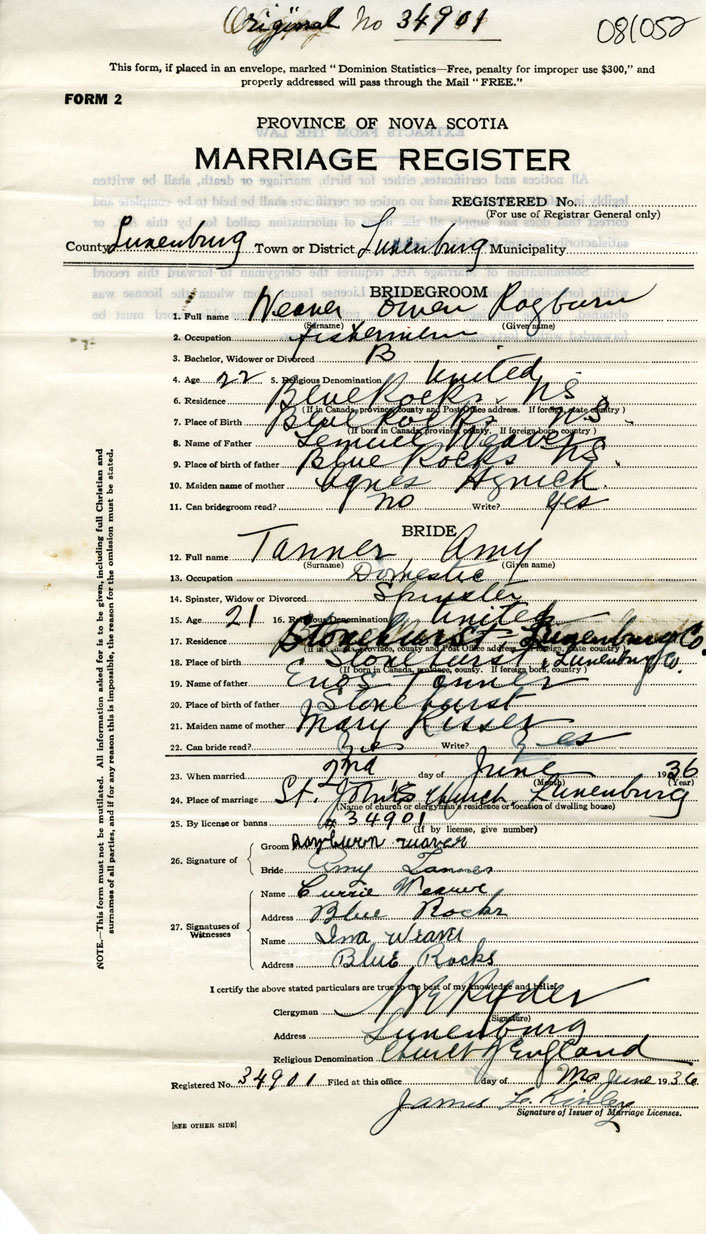 Original No 34901
081052
This form, if placed in an envelope, marked "Dominion Statistics—Free, penalty for improper use $300," and
properly addressed will pass through the Mail "FREE."
FORM 2
PROVINCE OF NOVA SCOTIA
MARRIAGE REGISTER
REGISTERED No.
(For use of Registrar General only)
County Lunenburg Town or District Lunenburg Municipality
BRIDEGROOM
1. Full name Weaver Owen Rayburn
(Surname) (Given name)
2. Occupation fisherman
3. Bachelor, Widower or Divorced B
4. Age 22 5. Religious Denomination United
6. Residence Blue Rocks. NS.
(If in Canada, province, county and Post Office address. If foreign, state country)
7. Place of Birth Blue Rocks. NS.
(If born in Canada, province, county. If foreign born, country)
8. Name of Father Lemuel Weaver
9. Place of birth of father Blue Rocks NS.
10. Maiden name of mother Agnes
11. Can bridegroom read? no Write? Yes
BRIDE
12. Full name Tanner Amy
(Surname) (Given name)
13. Occupation Domestic
14. Spinster, Widow or Divorced Spinster
15. Age 21 16. Religious Denomination United
17. Residence Stonehurst Lunenburg Co.
(If in Canada, province, county and Post Office address. If foreign, state country)
18. Place of birth Stonehurst, Lunenburg Co.
(If born in Canada, province, county. If foreign born, country)
19. Name of father Enos Tanner
20. Place of birth of father Stonehurst
21. Maiden name of mother Mary Kisser
22. Can bride read? Yes Write? Yes
23. When married 2nd day of June 1936
(Month) (Year)
24. Place of marriage St. John's Church, Lunenburg
(Name of church or clergyman's residence or location of dwelling house)
25. By license or banns #34901
(If by license, give number)
26. Signature of
Groom Rayburn weaver
Bride Amy Tanner
27. Signatures of Witnesses
Name Currie Weaver
Address Blue Rocks
Name Ina Weaver
Address Blue Rocks
I certify the above stated particulars are true to the best of my knowledge and belief.
Clergyman Ryder
(Signature)
Address Lunenburg
Religious Denomination Church of England
Registered No. 34901 Filed at this office day of June 1936
James L. Kinley
Signature of Issuer of Marriage Licenses.
[SEE OTHER SIDE]
NOTE.—This form must not be mutilated. All information asked for is to be given, including full Christian and
surnames of all parties, and if for any reason this is impossible, the reason for the omission must be stated.